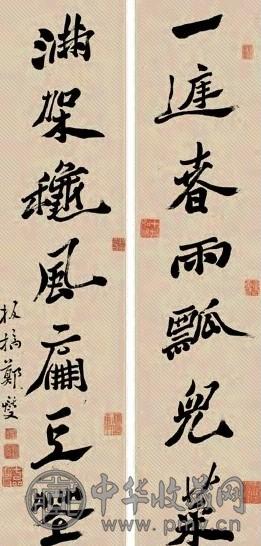 一庭春雨瓢兒菜
滿架穐風扁豆
板橋鄭燮
中华收藏网